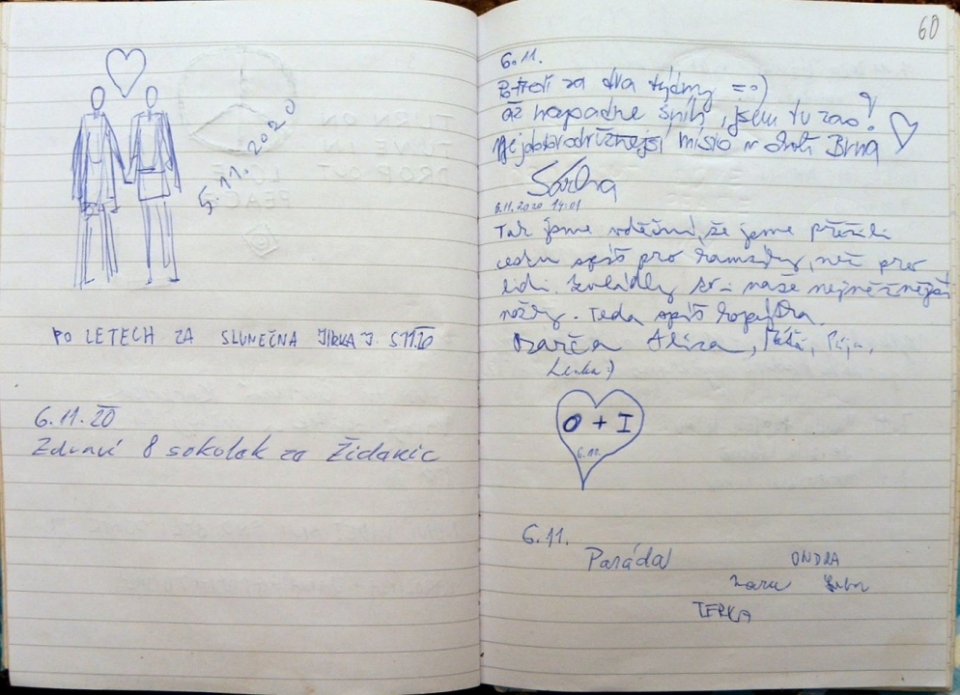 5.11.2020
PO LETECH ZA SLUNEČNA JIRKA J. 5.11.20
6.11.20
Zdraví 8 sokolek ze Židenic
60
6.11.
za dva týdny =o)
Až napadne sníh, jsem tu zas!
Nejdobrodružnější místo v okolí Brna
6.11.2020 14:01
Tak jsme vděční, že jsme přežili
cestu spíš pro kamzíky, než pro
lidi. Zvládly to i naše nejněžnější
nožky. Teda spíš kopýtka.
Lenka :)
O + I
6.11.
6.11.
Paráda
ONDRA
TERKA